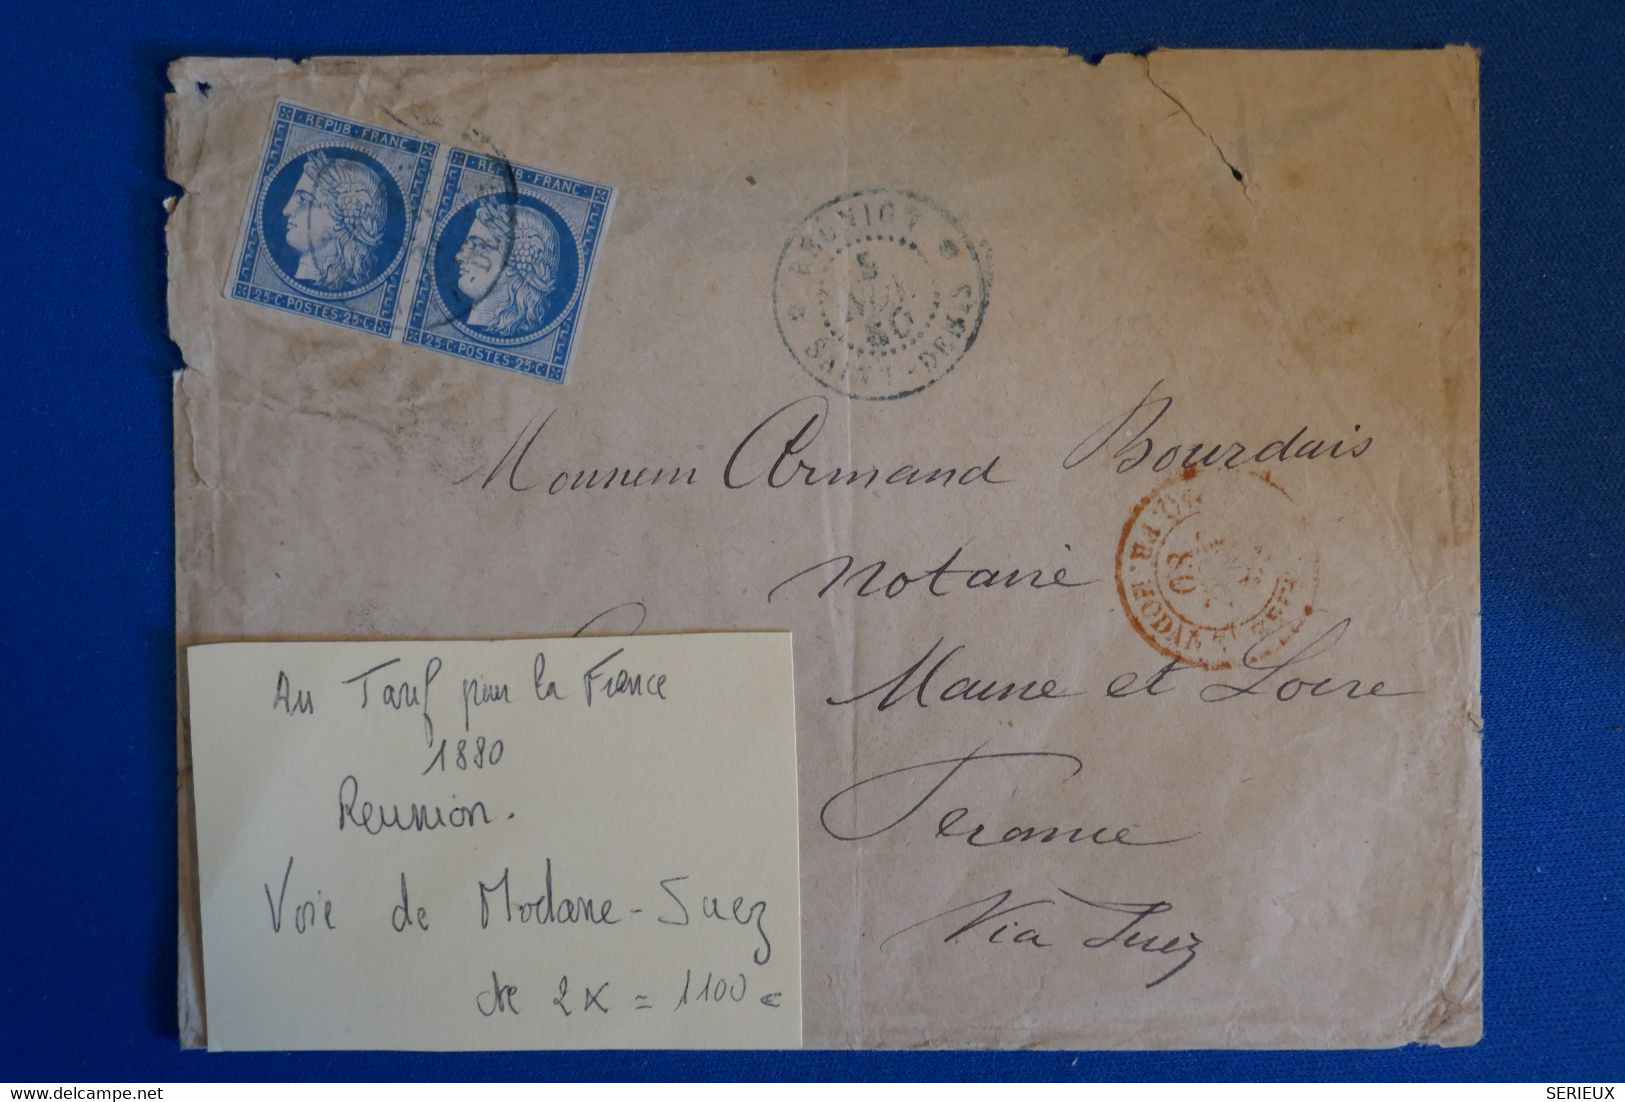 REPUB·FRANC
REPUB·FRANC
25·C·POSTES·25·C
25·C·POSTES·25·C
REUNION
5
80
SAINT-DENIS
Monsieur Armand Bourdais
Notaire
Maine et Loire
France
Via Suez
Au Tarif pour la France
1880
Reunion.
Voie de Modane-Suez
cote 2x = 1100 €
SERIEUX